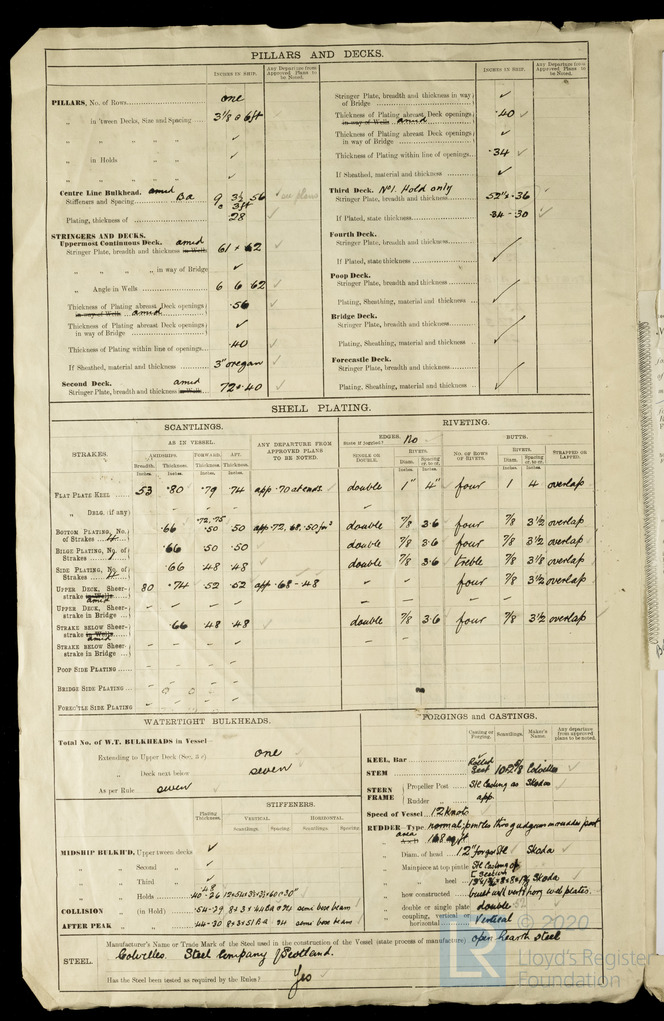 PILLARS AND DECKS.
INCHES IN SHIP.
Any Departure from Approved Plans to be Noted.
PILLARS, No. of Rows one
„ in 'tween Decks, Size and Spacing 3 1/8 @ 6ft
„ „ „ „ „ ✓
„ in Holds „ „ ✓
„ „ „ „ ✓
Centre Line Bulkhead. amid
Stiffeners and Spacing Ba 9 3½ .56 ✓ see plans
@ 3ft
Plating, thickness of .28 ✓
STRINGERS AND DECKS.
Uppermost Continuous Deck. amid
Stringer Plate, breadth and thickness in Wells 61 × .62 ✓
„ „ „ „ in way of Bridge ✓
„ Angle in Wells 6 6 .62 ✓
Thickness of Plating abreast Deck openings in way of Wells amid .56 ✓
Thickness of Plating abreast Deck openings in way of Bridge ✓
Thickness of Plating within line of openings .40 ✓
If Sheathed, material and thickness 3" oregan ✓
Second Deck. amid
Stringer Plate, breadth and thickness in Wells 72 × .40 ✓
INCHES IN SHIP.
Any Departure from Approved Plans to be Noted.
Stringer Plate, breadth and thickness in way of Bridge ✓
Thickness of Plating abreast Deck openings in way of Wells amid .40 ✓
Thickness of Plating abreast Deck openings in way of Bridge ✓
Thickness of Plating within line of openings .34 ✓
If Sheathed, material and thickness ✓
Third Deck. No 1. Hold only
Stringer Plate, breadth and thickness 52" × .36 ✓
If Plated, state thickness .34 - 30 ✓
Fourth Deck.
Stringer Plate, breadth and thickness
If Plated, state thickness ✓
Poop Deck.
Stringer Plate, breadth and thickness
Plating, Sheathing, material and thickness ✓
Bridge Deck.
Stringer Plate, breadth and thickness
Plating, Sheathing, material and thickness ✓
Forecastle Deck.
Stringer Plate, breadth and thickness
Plating, Sheathing, material and thickness ✓
SHELL PLATING.
SCANTLINGS.
RIVETING.
STRAKES.
AS IN VESSEL.
AMIDSHIPS. FORWARD. AFT.
Breadth. Thickness. Thickness. Thickness.
Inches. Inches. Inches. Inches.
ANY DEPARTURE FROM APPROVED PLANS TO BE NOTED.
EDGES. No
State if joggled?
SINGLE OR DOUBLE.
RIVETS.
Diam. Spacing cr. to cr.
Inches. Inches.
BUTTS.
NO. OF ROWS OF RIVETS.
RIVETS.
Diam. Spacing cr. to cr.
Inches. Inches.
STRAPPED OR LAPPED.
FLAT PLATE KEEL 53 .80 .79 .74 app .70 at ends. ✓ double 1" 4" ✓ four 1 4 overlap
„ DBLG. (if any) – –
BOTTOM PLATING, No. of Strakes 4 .66 .72, .75 .50 .50 double 7/8 3.6 four 7/8 3½ overlap
BILGE PLATING, No. of Strakes .66 .50 .50 double 7/8 3.6 four 7/8 3½ overlap
SIDE PLATING, No. of Strakes 4 .66 .48 .48 double 7/8 3.6 treble 7/8 3 1/8 overlap
UPPER DECK, Sheerstrake in Wells amid 80 .74 .52 .52 app .68 - 48 – – four 7/8 3½ overlap
UPPER DECK, Sheerstrake in Bridge – – – – – –
STRAKE BELOW Sheerstrake in Wells amid .66 .48 .48 ✓ double 7/8 3.6 four 7/8 3½ overlap
STRAKE BELOW Sheerstrake in Bridge – – – – –
POOP SIDE PLATING – – – –
BRIDGE SIDE PLATING
FOREC'TLE SIDE PLATING – – – –
WATERTIGHT BULKHEADS.
Total No. of W.T. BULKHEADS in Vessel—
Extending to Upper Deck (Sec. 3 c) one
„ Deck next below seven
As per Rule seven
Plating Thickness.
STIFFENERS.
VERTICAL HORIZONTAL
Scantlings. Spacing Scantlings. Spacing.
MIDSHIP BULKH'D, Upper tween decks ✓
„ „ Second „ ✓
„ „ Third „ ✓
„ „ Holds
COLLISION „ (in Hold) .54-.29 semi box beam
AFTER PEAK „ „ .44-.30 semi box beam
FORGINGS AND CASTINGS.
Casting or Forging. Scantlings. Maker's Name. Any departure from approved plans to be noted.
KEEL, Bar ✓
STEM Rolled Colvilles ✓
STERN FRAME
Propeller Post Stl Casting as Skoda ✓
Rudder „ app.
Speed of Vessel 12 Knots
RUDDER—Type normal: pintles thro gudgeon on rudder post
„ area
„ Diam. of head 12" forged Stl Skoda ✓
„ Mainpiece at top pintle Stl Casting of
„ „ heel Skoda ✓
„ how constructed built with vert & hory web plates.
„ double or single plate double
„ coupling, vertical or horizontal Vertical
STEEL.
Manufacturer's Name or Trade Mark of the Steel used in the construction of the Vessel (state process of manufacture) open hearth steel
Colvilles. Steel Company of Scotland.
Has the Steel been tested as required by the Rules? Yes
© 2020
LR
Lloyd's Register
Foundation